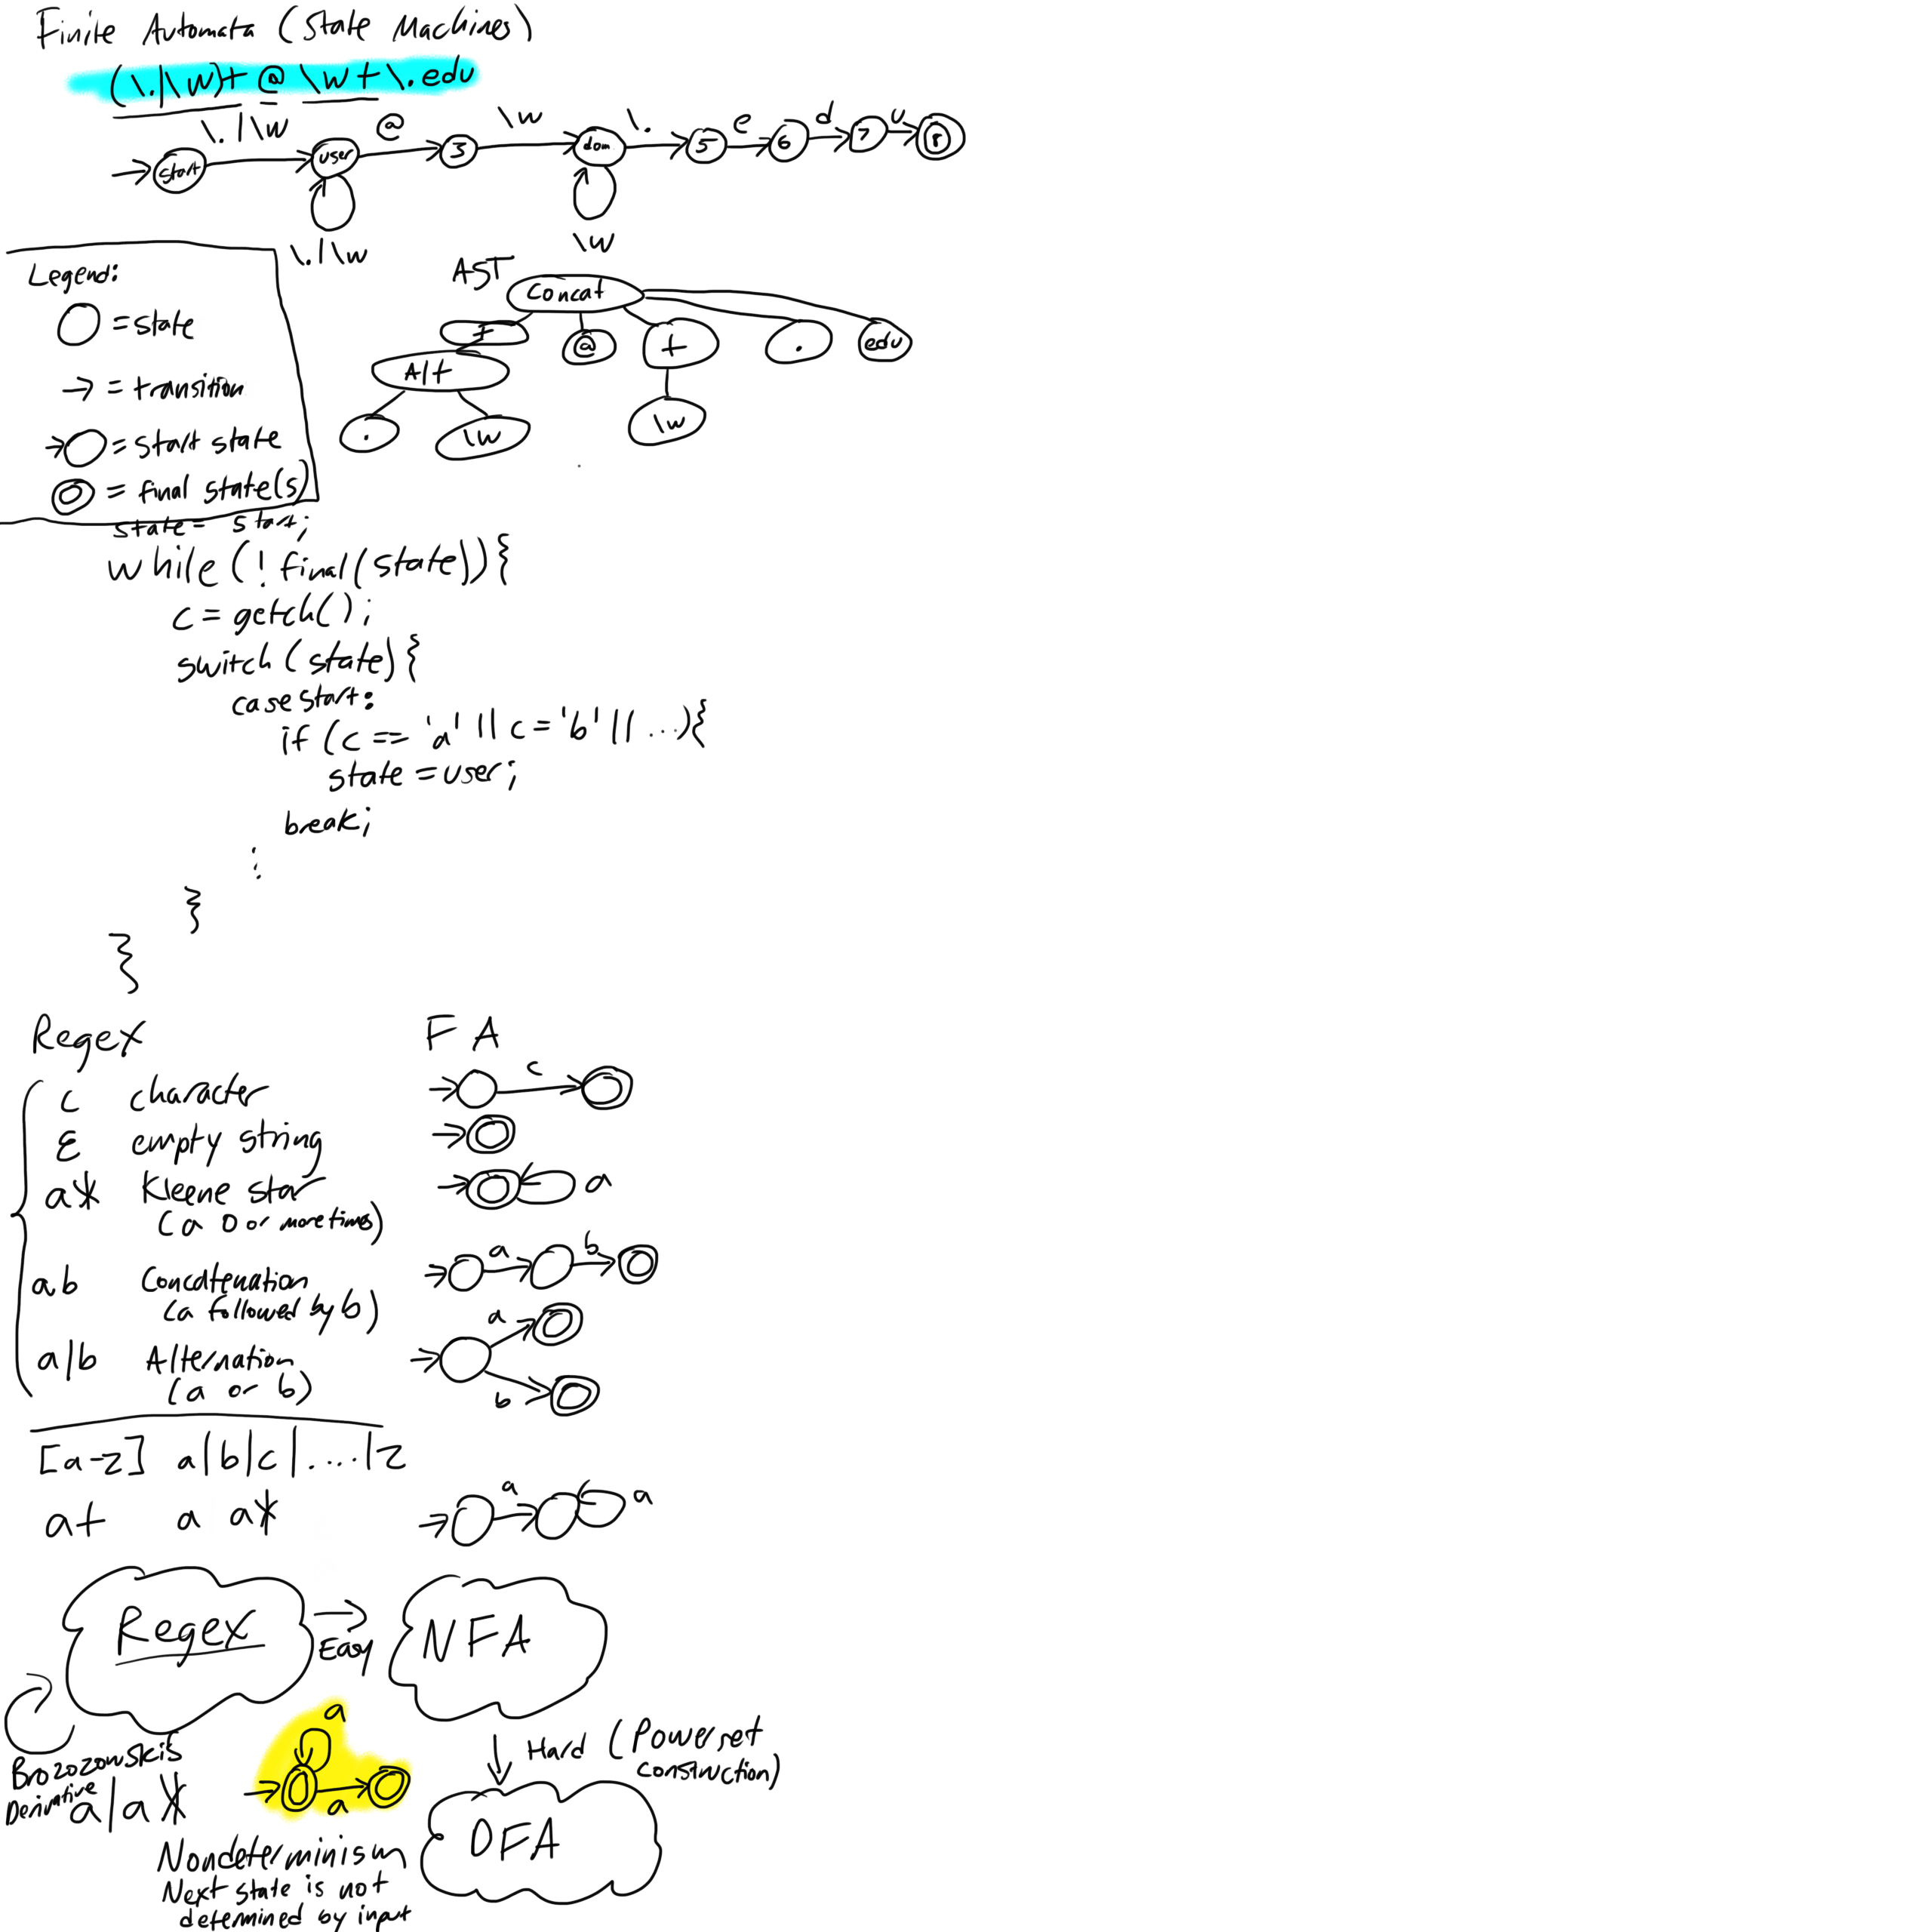 Finite Automata (State Machines)
(\.|\w)+ @ \w+ \. edu
\.|\w @ \w \. e d u
start user 3 dom 5 6 7 8
\.|\w \w
Legend:
= state
→ = transition
= start state
= final state(s)
AST
Concat
+ @ + . edu
Alt
. \w \w
state = start;
while (! final(state)){
c = getch();
switch (state){
case start:
if (c == 'a' || c = 'b' || ...){
state = user;
break;
:
}
}
Regex FA
c character c
ε empty string
a* Kleene star a
(a 0 or more times)
ab Concatenation a b
(a followed by b)
a|b Alternation a
(a or b) b
[a-z] a|b|c|....|z
a+ a a* a a
Regex → Easy NFA
Hard (Powerset
construction)
DFA
Brozozowskis
Derivative
a|a* a a
Nondeterminism
Next state is not
determined by input